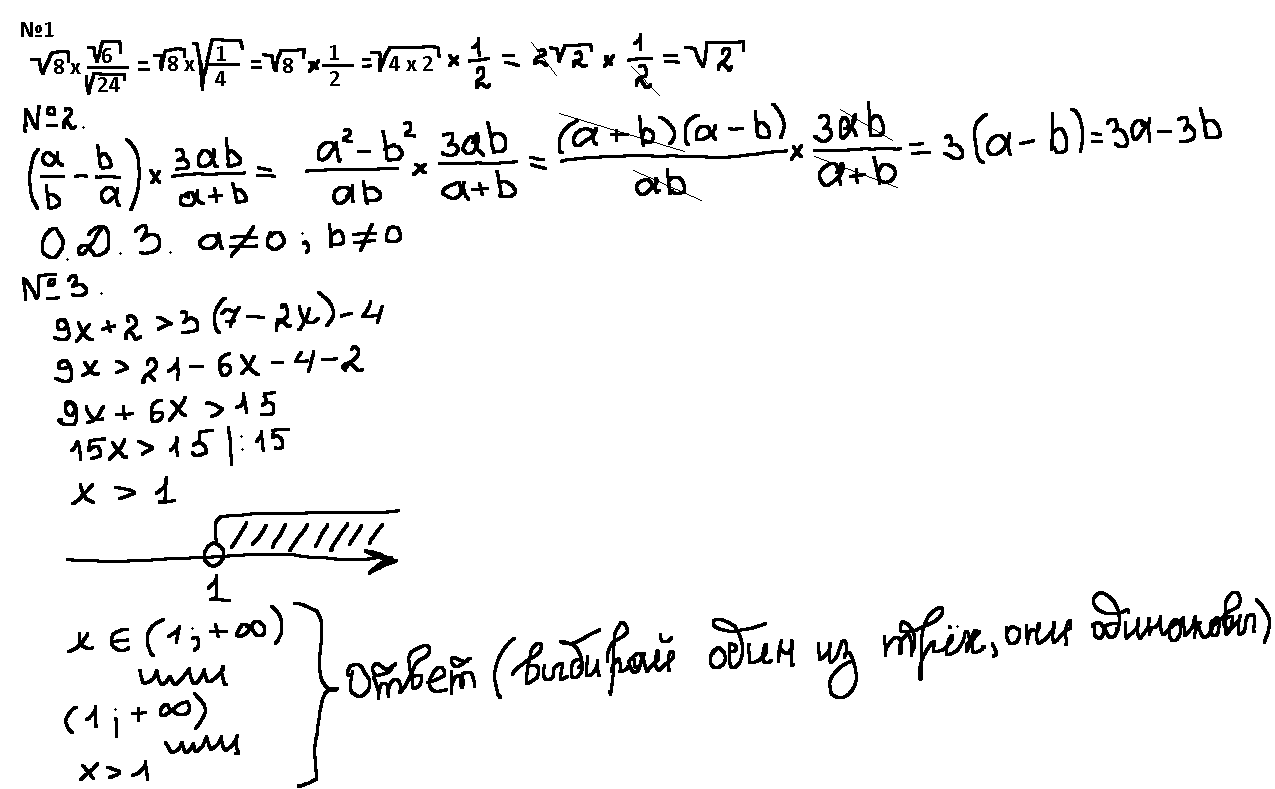 №1
√8 x √6/√24 = √8 x √(1/4) = √8 x 1/2 = √(4 x 2) x 1/2 = 2√2 x 1/2 = √2
№2.
(a/b - b/a) x 3ab/(a+b) = (a² - b²)/ab x 3ab/(a+b) = (a+b)(a-b)/ab x 3ab/(a+b) = 3(a-b) = 3a-3b
О.Д.З. a≠0 ; b≠0
№3.
9x+2 > 3(7-2x)-4
9x > 21-6x-4-2
9x + 6x > 15
15x > 15 |:15
x > 1
1
x ∈ (1; +∞)
или
Ответ (выбирай один из трёх, они одинаковы)
(1; +∞)
или
x > 1